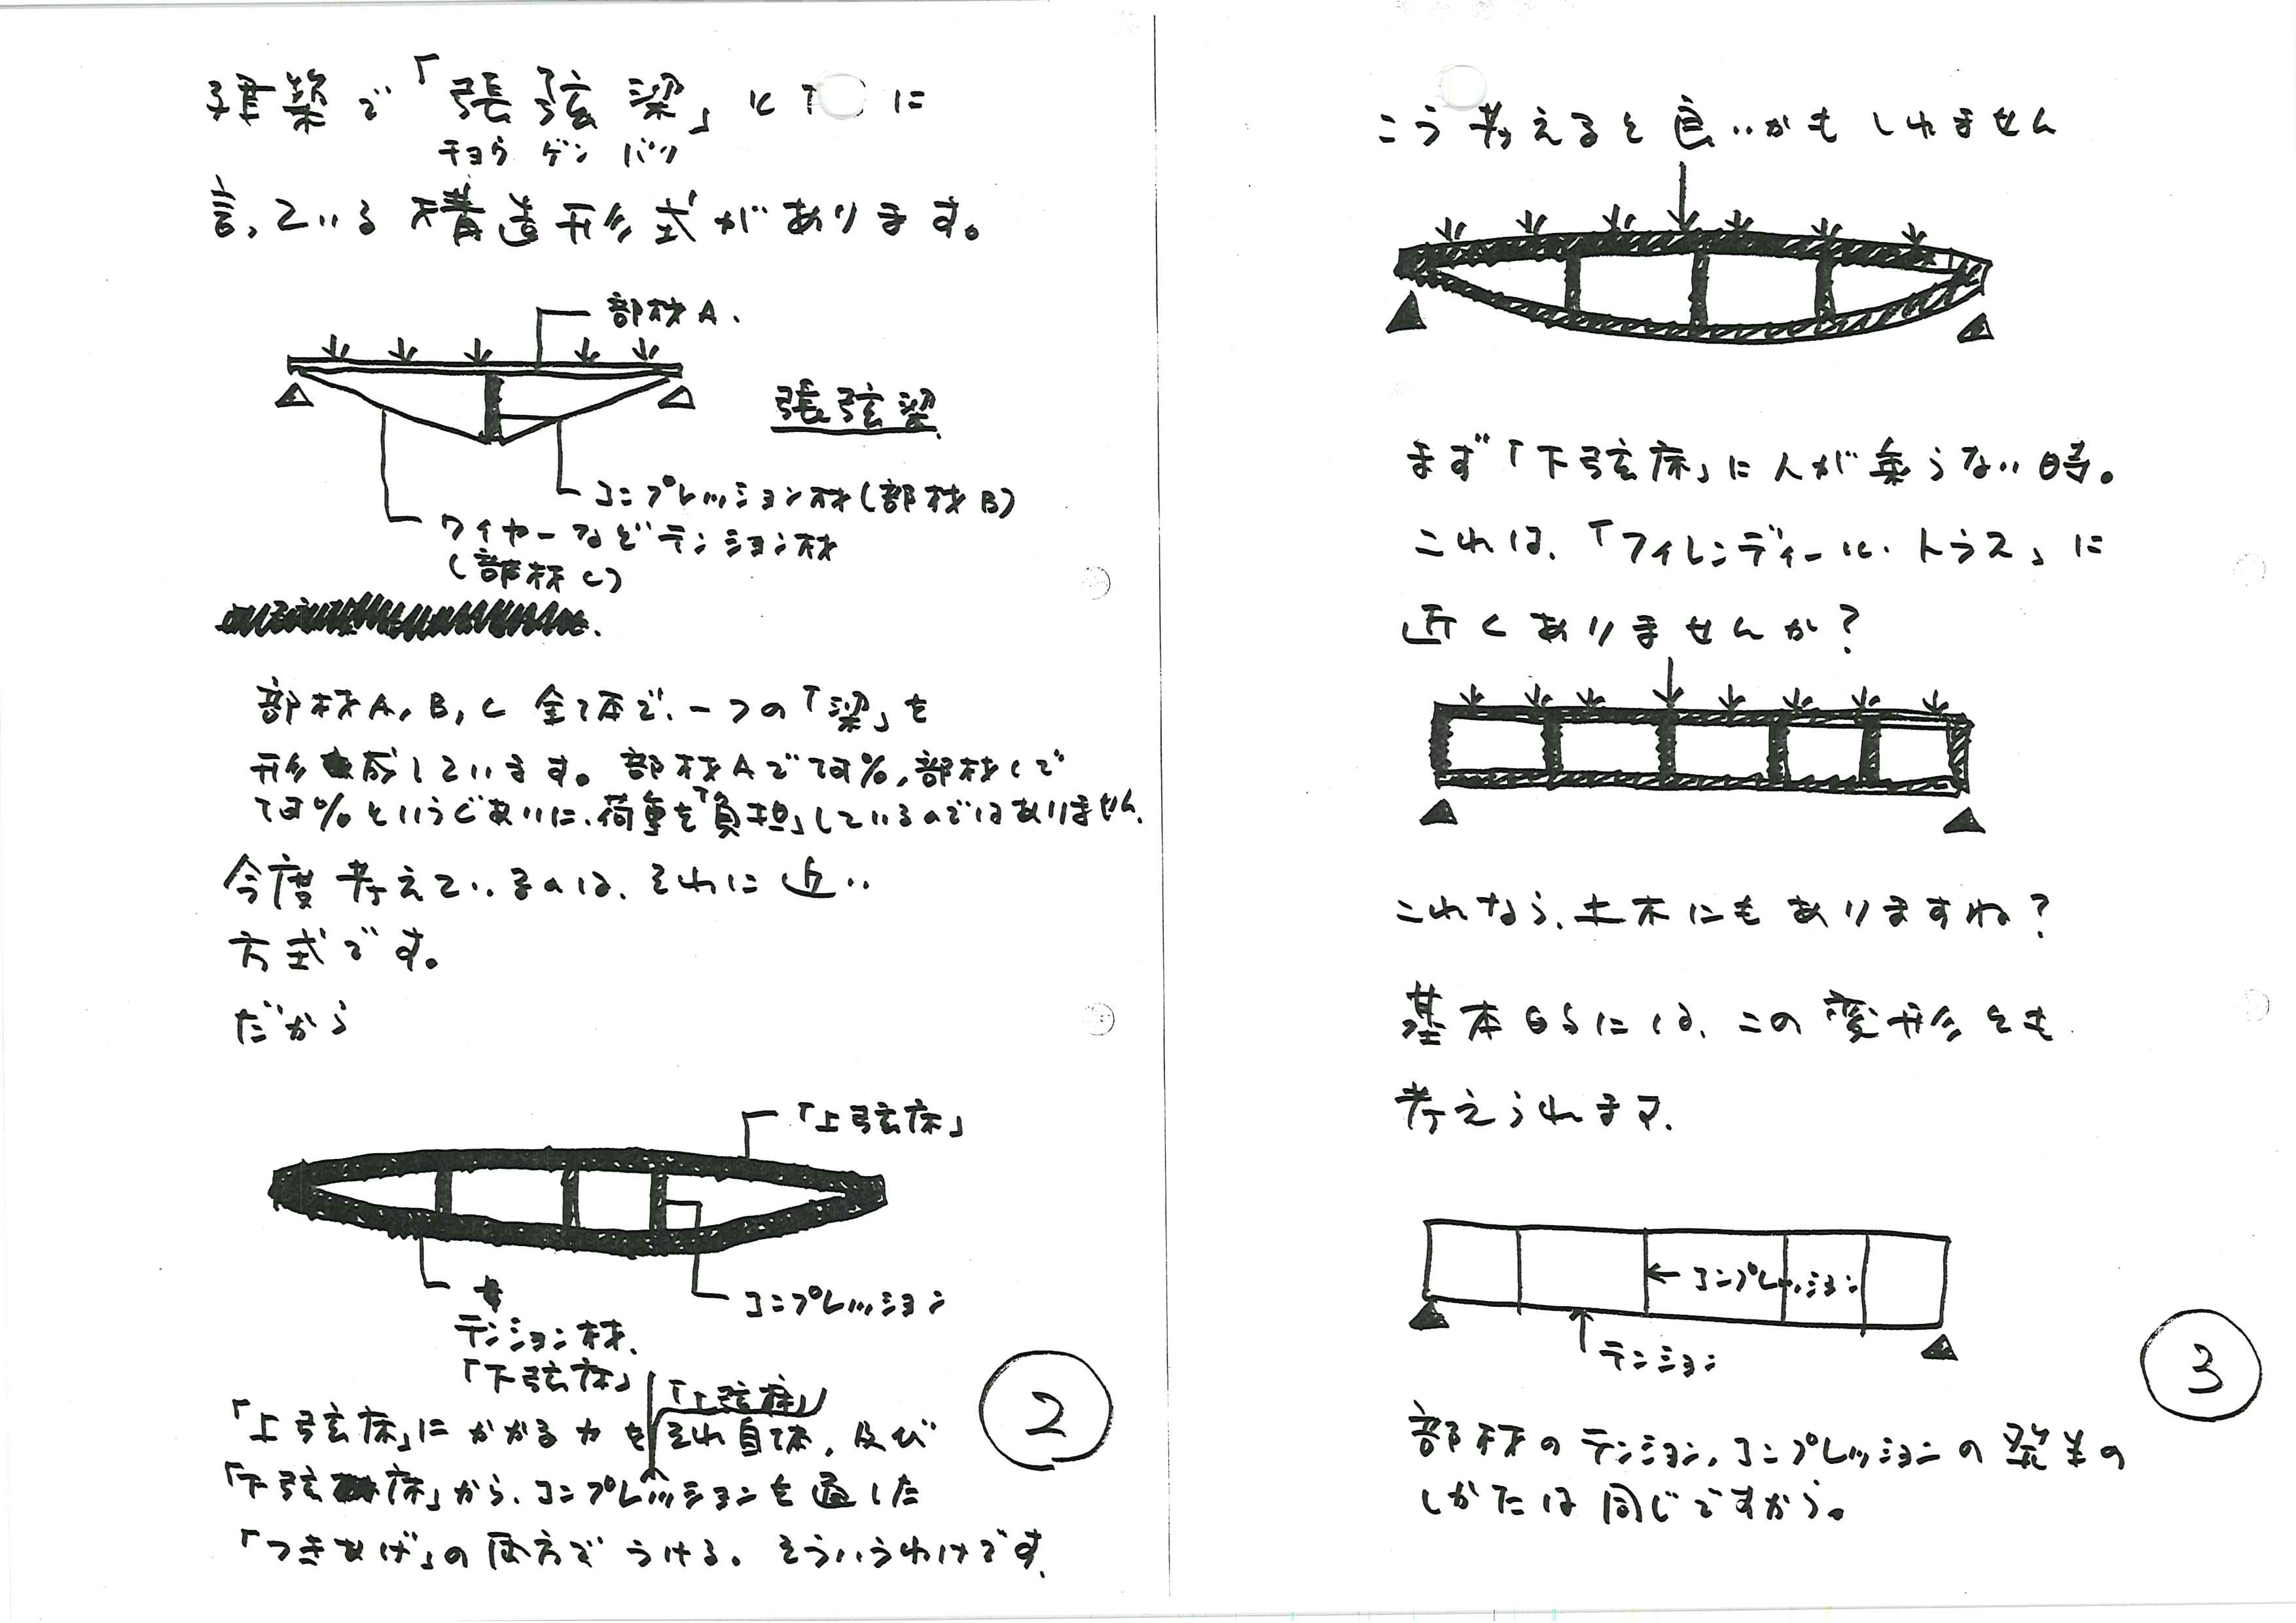 建築で「張弦梁」と に
チョウ ゲン バリ
言っている構造形式があります。
部材A.
張弦梁
コンプレッション材(部材B)
ワイヤーなどテンション材
(部材C)
部材A,B,C 全体で、一つの「梁」を
形成しています。部材Aで 何%,部材Cで
何%というぐあいに、荷重を「負担」しているのではありません.
今度考えているのは、それに近い
方式です。
だから
「上弦床」
コンプレッション
テンション材.
「下弦床」
「上弦床」
「上弦床」にかかる力を それ自体、及び
「下弦床」から、コンプレッションを通した
「つきあげ」の両方でうける。そういうわけです.
2
こう考えると良いかもしれません
まず「下弦床」に人が乗らない時。
これは、「フィレンディール・トラス」に
近くありませんか?
これなら、土木にもありますね?
基本的には、この変形とも
考えられます.
←コンプレッション
↑テンション
3
部材のテンション,コンプレッションの発生の
しかたは同じですから。